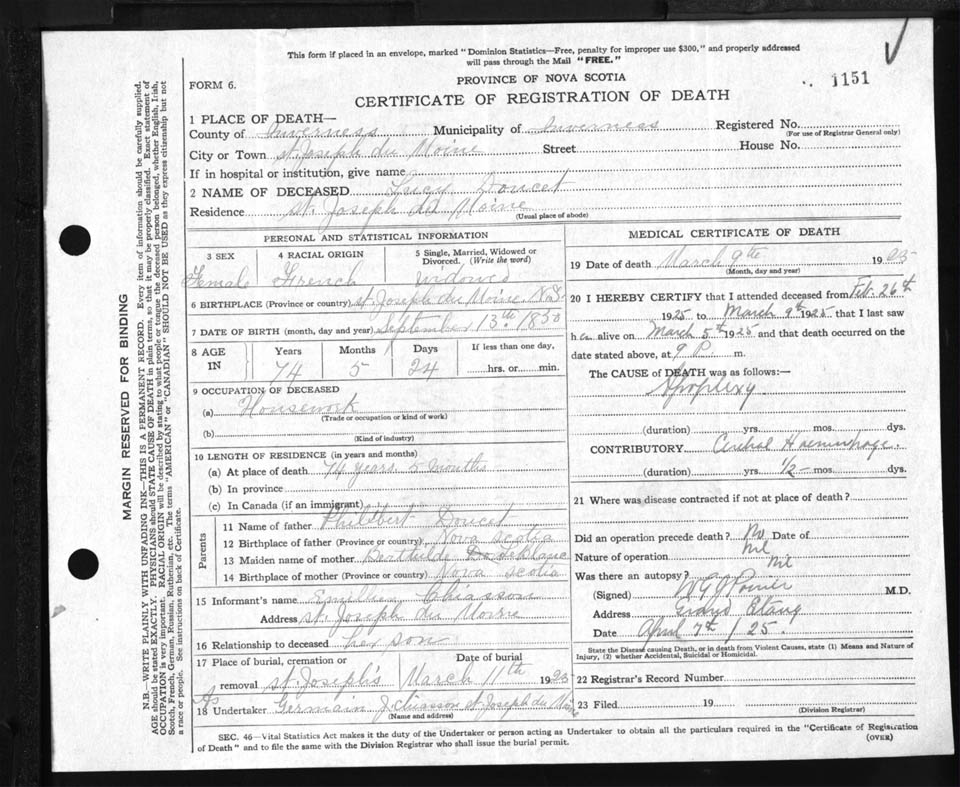 This form if placed in an envelope, marked "Dominion Statistics—Free, penalty for improper use $300," and properly addressed
will pass through the Mail "FREE."
FORM 6.
PROVINCE OF NOVA SCOTIA
1151
CERTIFICATE OF REGISTRATION OF DEATH
1 PLACE OF DEATH—
County of Inverness Municipality of Inverness Registered No.
(For use of Registrar General only)
City or Town St. Joseph du Moine Street House No.
If in hospital or institution, give name
2 NAME OF DECEASED Lucy Doucet
Residence St. Joseph du Moine
(Usual place of abode)
PERSONAL AND STATISTICAL INFORMATION
3 SEX 4 RACIAL ORIGIN 5 Single, Married, Widowed or Divorced. (Write the word)
Female French Widowed
6 BIRTHPLACE (Province or country) St. Joseph du Moine N.S.
7 DATE OF BIRTH (month, day and year) September 13th 1850
8 AGE IN Years Months Days If less than one day,
74 5 24 hrs. or min.
9 OCCUPATION OF DECEASED
(a) Housework
(Trade or occupation or kind of work)
(b)
(Kind of industry)
10 LENGTH OF RESIDENCE (in years and months)
(a) At place of death 74 years. 5 months
(b) In province
(c) In Canada (if an immigrant)
Parents
11 Name of father Philibert Doucet
12 Birthplace of father (Province or country) Nova Scotia
13 Maiden name of mother
14 Birthplace of mother (Province or country) Nova Scotia
15 Informant's name Chiasson
Address St. Joseph du Moine
16 Relationship to deceased her son
17 Place of burial, cremation or Date of burial
removal St. Joseph's March 11th 1925
18 Undertaker Germain J. Chiasson St. Joseph du Moine
(Name and address)
MEDICAL CERTIFICATE OF DEATH
19 Date of death March 9th 1925
(Month, day and year)
20 I HEREBY CERTIFY that I attended deceased from Feb. 26th
1925 to March 9th 1925 that I last saw
her alive on March 5th 1925 and that death occurred on the
date stated above, at 9 P m.
The CAUSE of DEATH was as follows:—
Apoplexy
(duration) yrs. mos. dys.
CONTRIBUTORY Cerebral Haemorrhage.
(duration) yrs. 1/2 mos. dys.
21 Where was disease contracted if not at place of death?
Did an operation precede death? No Date of
Nature of operation nil
Was there an autopsy? Nil
(Signed) M.D.
Address Grand Etang
Date April 7th /25.
State the Disease causing Death, or in death from Violent Causes, state (1) Means and Nature of
Injury, (2) whether Accidental, Suicidal or Homicidal.
22 Registrar's Record Number
23 Filed 19
(Division Registrar)
SEC. 46—Vital Statistics Act makes it the duty of the Undertaker or person acting as Undertaker to obtain all the particulars required in the "Certificate of Registration
of Death" and to file the same with the Division Registrar who shall issue the burial permit.
(OVER)
MARGIN RESERVED FOR BINDING
N.B.—WRITE PLAINLY WITH UNFADING INK—THIS IS A PERMANENT RECORD. Every item of information should be carefully supplied.
AGE should be stated EXACTLY. PHYSICIANS should STATE CAUSE OF DEATH in plain terms, so that it may be properly classified. Exact statement of
OCCUPATION is very important. RACIAL ORIGIN will be described by stating to what people or tongue the deceased person belonged, whether English, Irish,
Scotch, French, German, Russian, Ruthenian, etc. The terms "AMERICAN" or "CANADIAN" SHOULD NOT BE USED as they express citizenship but not
a race or people. See instructions on back of Certificate.